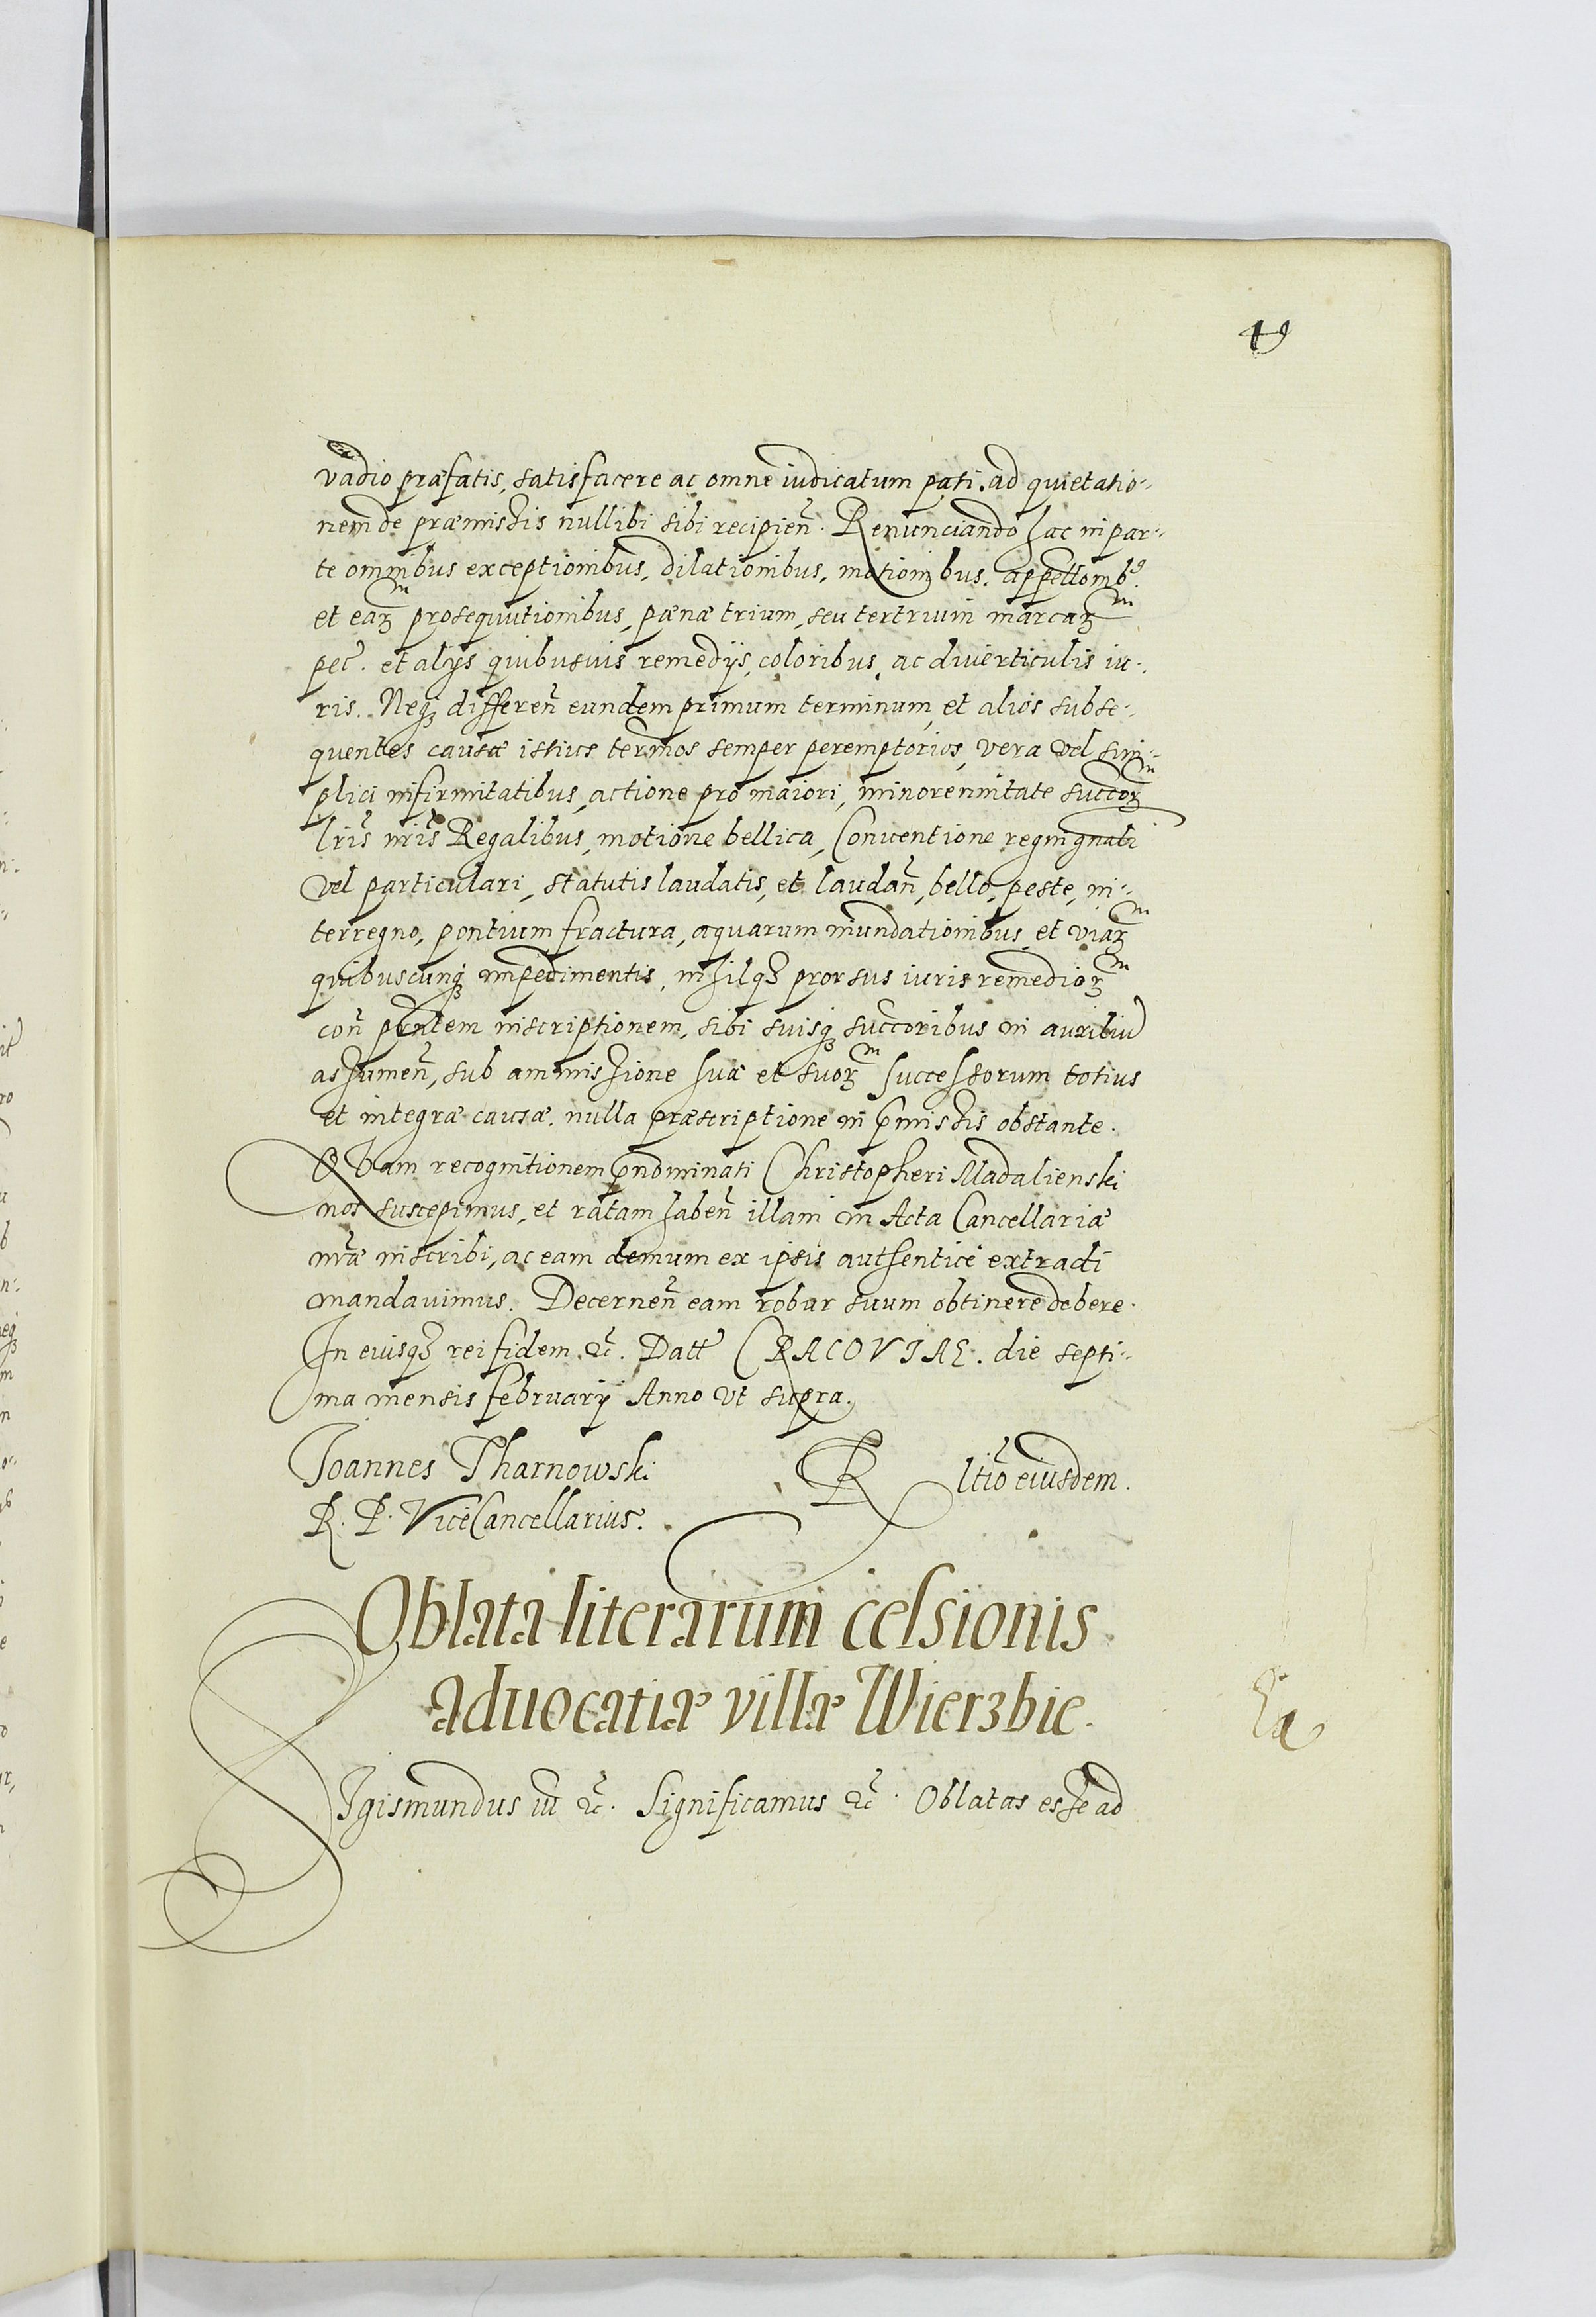 49
vadio præfatis, satisfacere ac omne iudicatum pati. ad quietatio-
nem de præmissis nullibi sibi recipien̄. Renunciando hac in par-
te omnibus exceptionibus, dilationibus, motionibus. appellōnibꝰ.
et eaꝝ prosequutionibus, pænæ trium, seu tertrium marcaꝝ
pec̄. et alijs quibusuis remedijs, coloribus, ac diuerticulis iu-
ris. Neqȝ differen̄ eundem primum terminum, et alios subse-
quentes causæ istius term̄os semper peremptorios, vera vel sim-
plici infirmitatibus, actione pro maiori, minorennitate succoꝝ
lr̄is nr̄is Regalibus, motione bellica, Conuentione regni gnali
vel particulari, statutis laudatis, et laudan̄, bello, peste, in-
terregno, pontium fractura, aquarum inundationibus, et viaꝝ
quibuscunqȝ impedimentis, nihilqȝ prorsus iuris remedioꝝ
con̄ pn̄tem inscriptionem, sibi suisqȝ succoribus in auxiliū
assumen̄, sub ammissione suæ et suoꝝ successorum totius
et integræ causæ, nulla præscriptione in p̄missis obstante.
Quam recognitionem p̄nominati Christopheri Madalienski
nos suscepimus, et ratam haben̄ illam in Acta Cancellariæ
nr̄æ inscribi, ac eam demum ex ipsis authentice extradi
mandauimus. Decernen̄ eam robur suum obtinere debere.
In cuiusqȝ rei fidem &c̄. Datt̄ CRACOVIAE. die septi-
ma mensis februarij Anno vt supra.
Joannes Tharnowski R ltīo eiusdem.
R. P. ViceCancellarius.
Oblata literarum celsionis
aduocatiæ villæ Wierzbie.
SIgismundus iii &c̄. Significamus &c̄. Oblatas esse ad